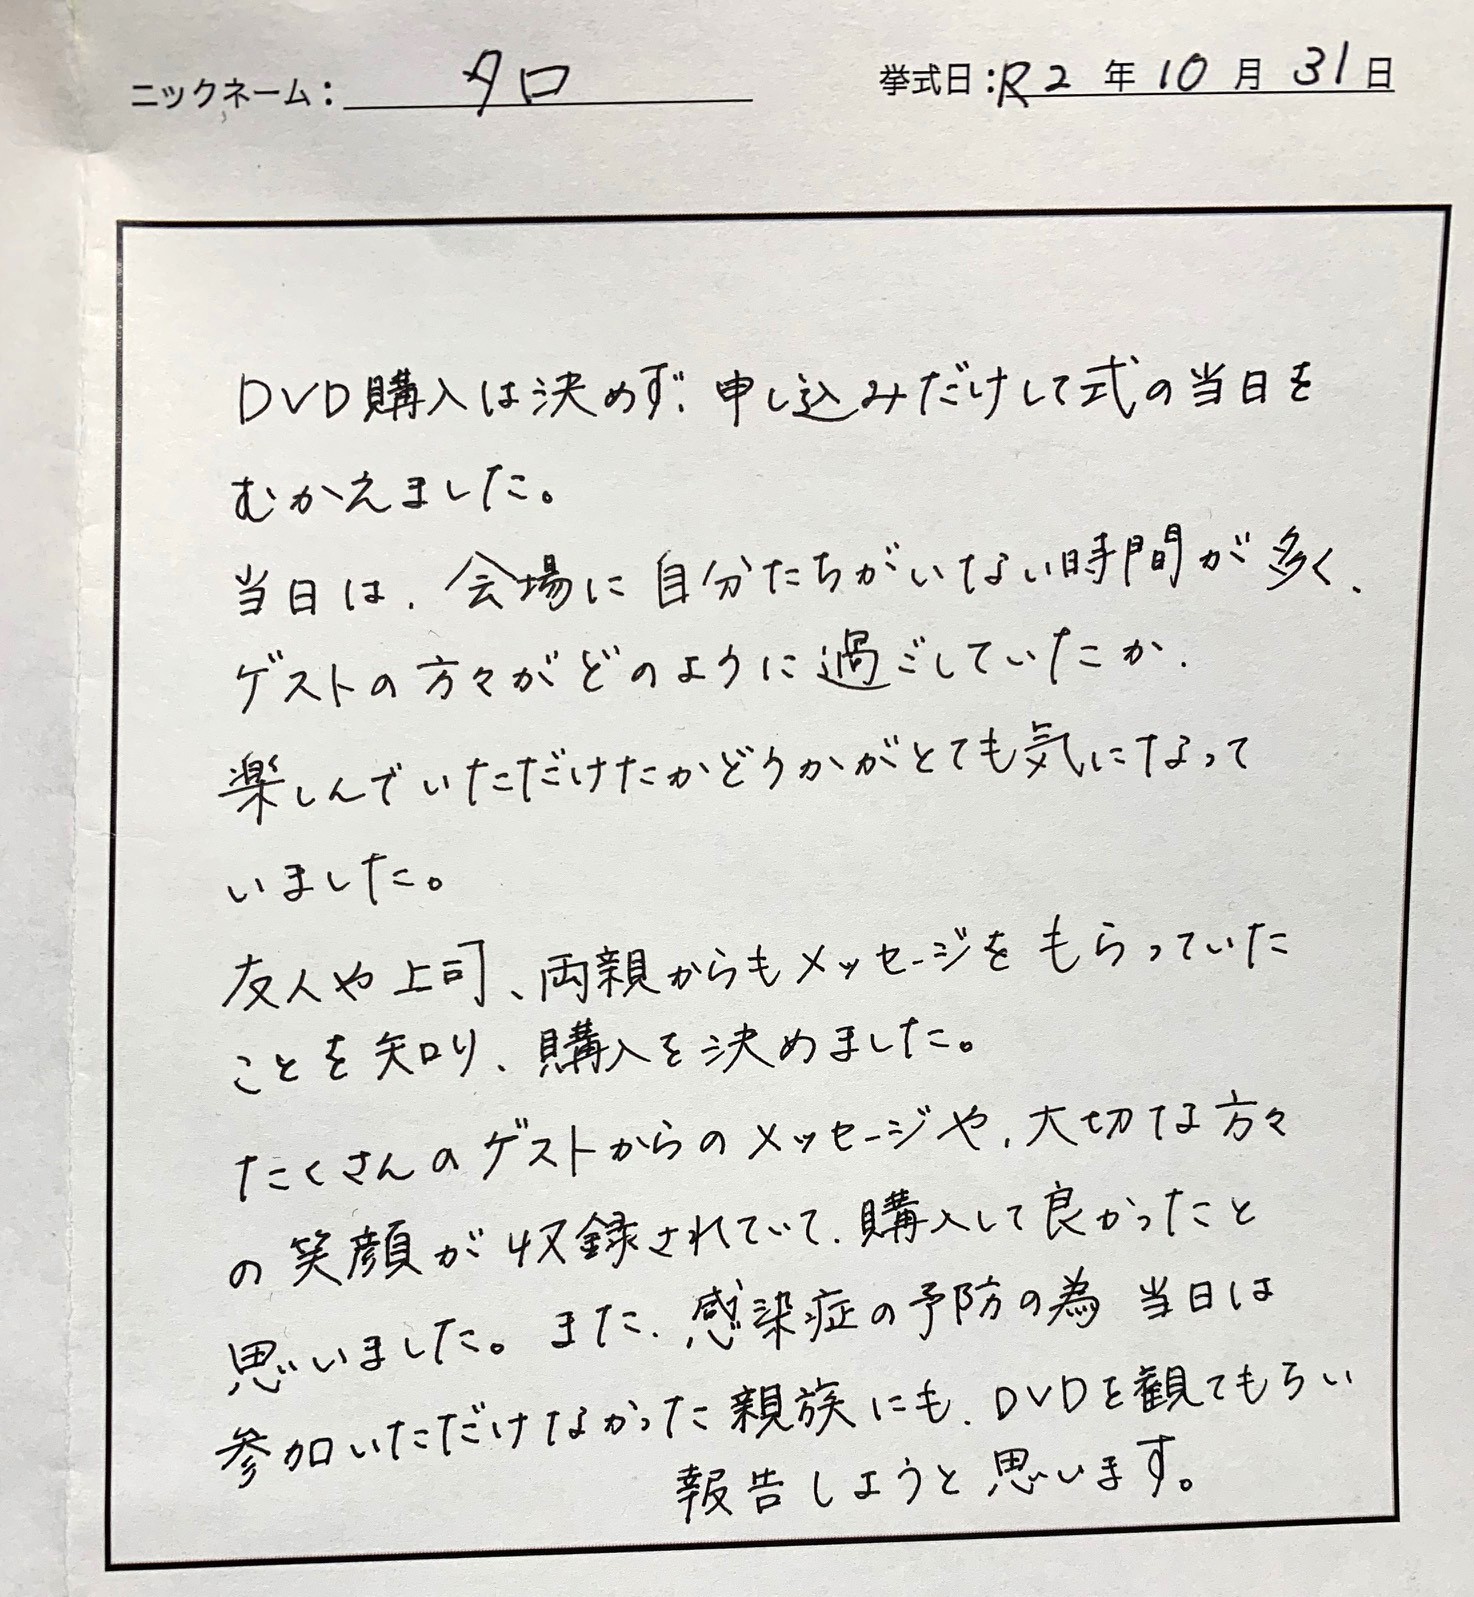 ニックネーム：タロ
挙式日：R2年10月31日
DVD購入は決めず、申し込みだけして式の当日を
むかえました。
当日は、会場に自分たちがいない時間が多く、
ゲストの方々がどのように過ごしていたか、
楽しんでいただけたかどうかがとても気になって
いました。
友人や上司、両親からもメッセージをもらっていた
ことを知り、購入を決めました。
たくさんのゲストからのメッセージや、大切な方々
の笑顔が収録されていて、購入して良かったと
思いました。また、感染症の予防の為 当日は
参加いただけなかった親族にも、DVDを観てもらい
報告しようと思います。